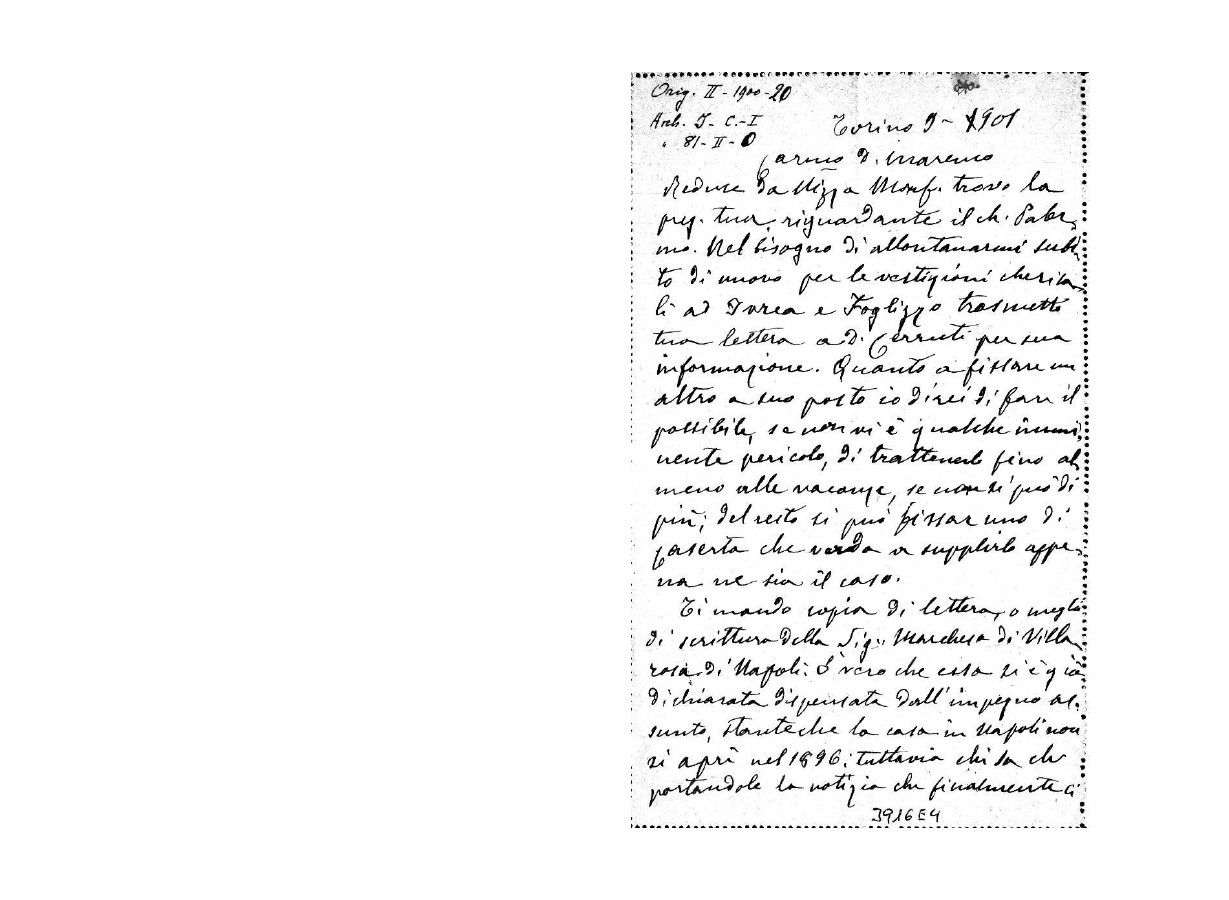 Orig. II - 1900 - 20
Arch. S - C. - I
" 81 - II - 0
Torino 9 - X 901
Carmo D. Marenco
Reduce da Nizza Monf. trovo la
preg. tua, riguardante il ch. Paler-
mo. Nel bisogno di allontanarmi subi-
to di nuovo per le vestizioni cherica-
li ad Ivrea e Foglizzo trasmetto
tua lettera a D. Cerruti per sua
informazione. Quanto a fissare un
altro a suo posto io direi di fare il
possibile, se non vi è qualche immi-
nente pericolo, di trattenerlo fino al-
meno alle vacanze, se non si può di
più; del resto si può fissar uno di
Caserta che vada a supplirlo appe-
na ne sia il caso.
Ti mando copia di lettera, o meglio
di scrittura della Sig.ª Marchesa di Villa-
rosa di Napoli. È vero che essa si è già
dichiarata dispensata dall'impegno as-
sunto, stanteche la casa in Napoli non
si aprì nel 1896; tuttavia chi sa che
portandole la notizia che finalmente ci
3916E4